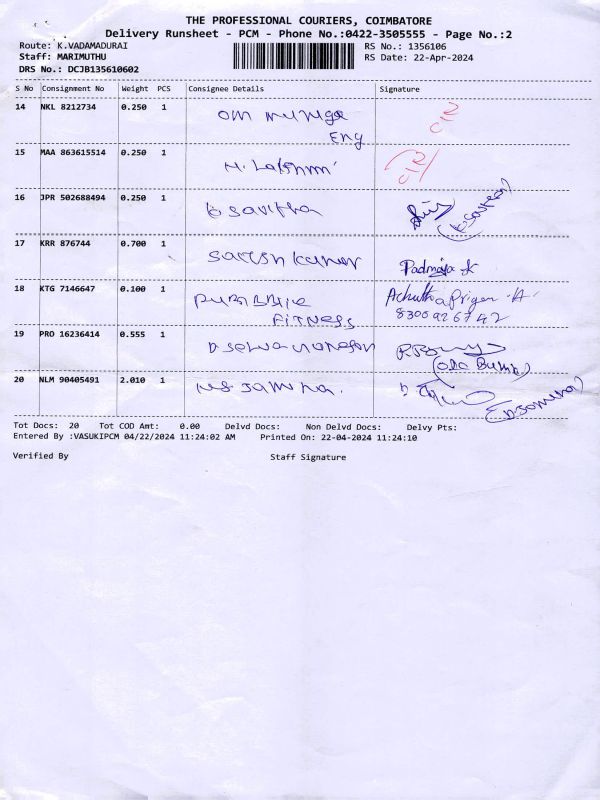 THE PROFESSIONAL COURIERS, COIMBATORE
Delivery Runsheet - PCM - Phone No.:0422-3505555 - Page No.:2
Route: K.VADAMADURAI RS No.: 1356106
Staff: MARIMUTHU RS Date: 22-Apr-2024
DRS No.: DCJB135610602
S No Consignment No Weight PCS Consignee Details Signature
14 NKL 8212734 0.250 1 om muruga
Eng
15 MAA 863615514 0.250 1 M. Lakshmi
16 JPR 502688494 0.250 1 b savitha
17 KRR 876744 0.700 1 Satish kumar Padmaja K
18 KTG 7146647 0.100 1
FITNESS 8300926742
19 PRO 16236414 0.555 1
20 NLM 90405491 2.010 1
Tot Docs: 20 Tot COD Amt: 0.00 Delvd Docs: Non Delvd Docs: Delvy Pts:
Entered By :VASUKIPCM 04/22/2024 11:24:02 AM Printed On: 22-04-2024 11:24:10
Verified By Staff Signature